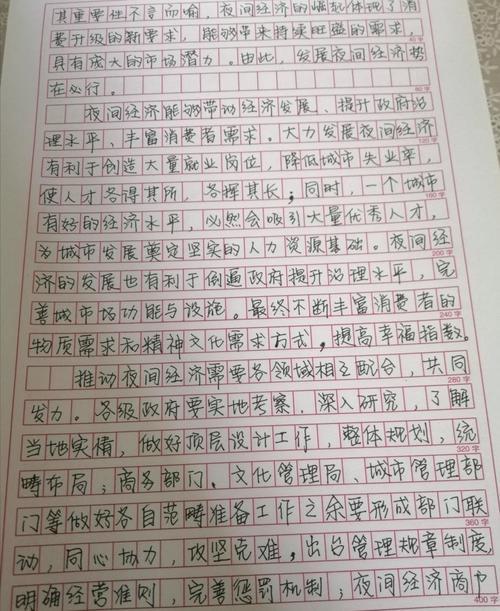 其重要性不言而喻，夜间经济的崛起体现了消
费升级的新要求，能够带来持续旺盛的需求，
具有庞大的市场潜力。由此，发展夜间经济势
40字
在必行。
80字
夜间经济能够带动经济发展、提升政府治
理水平、丰富消费者需求。大力发展夜间经济
120字
有利于创造大量就业岗位，降低城市失业率，
使人才各得其所，各挥其长；同时，一个城市
160字
有好的经济水平，必然会吸引大量优秀人才，
为城市发展奠定坚实的人力资源基础。夜间经
200字
济的发展也有利于倒逼政府提升治理水平，完
善城市场功能与设施。最终不断丰富消费者的
240字
物质需求和精神文化需求方式，提高幸福指数。
推动夜间经济需要各领域相互配合，共同
280字
发力。各级政府要实地考察，深入研究，了解
当地实情，做好顶层设计工作，整体规划，统
320字
畴布局；商务部门、文化管理局、城市管理部
门等做好各自范畴准备工作之余要形成部门联
360字
动，同心协力，攻坚克难，出台管理规章制度，
明确经营准则，完善惩罚机制；夜间经济商户
400字